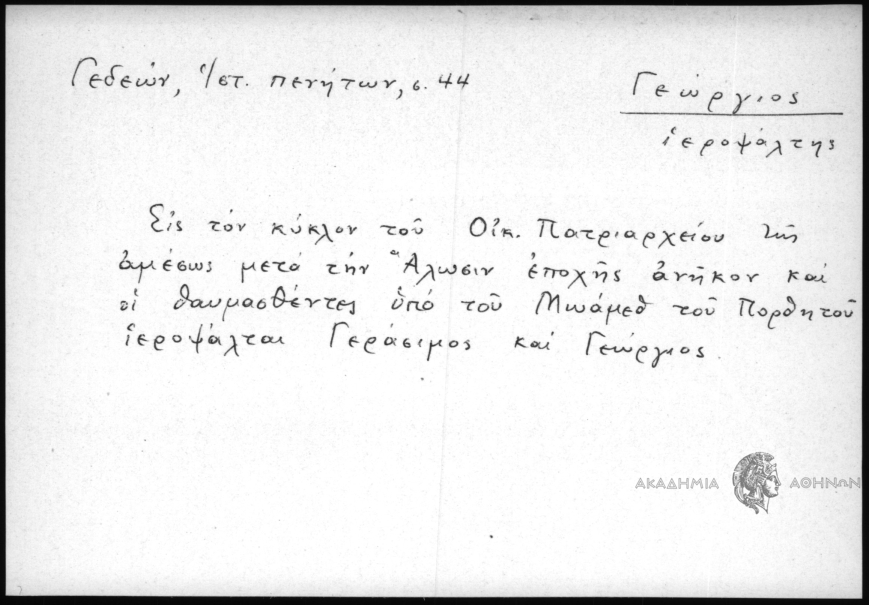 Γεδεών, Ἱστ. πενήτων, σ. 44
Γεώργιος
ἱεροψάλτης
Εἰς τόν κύκλον τοῦ Οἰκ. Πατριαρχείου τῆς
ἀμέσως μετά τήν Ἅλωσιν ἐποχῆς ἀνῆκον καί
οἱ θαυμασθέντες ὑπό τοῦ Μωάμεθ τοῦ Πορθητοῦ
ἱεροψάλται Γεράσιμος καί Γεώργιος.
ΑΚΑΔΗΜΙΑ ΑΘΗΝΩΝ